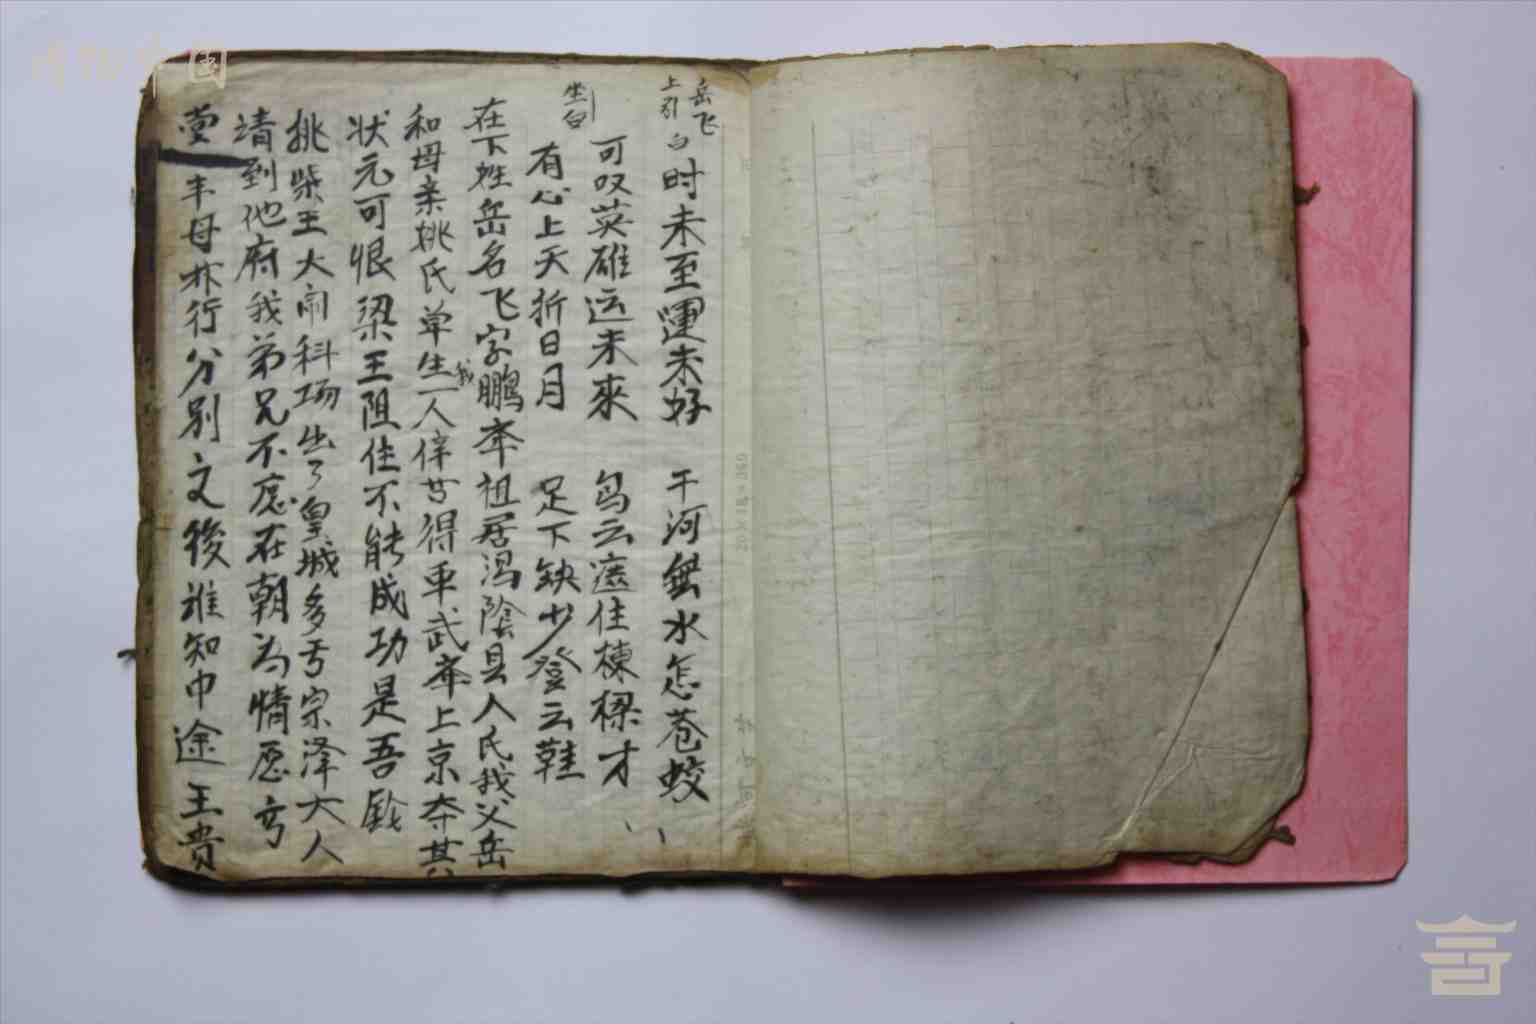 岳飞
上引白 时未至運未好 干河無水怎苍蛟
可叹英雄运未來 乌云遮住棟樑才
坐白 有心上天折日月 足下缺少登云鞋
在下姓岳名飞字鹏举祖居湯陰县人氏我父岳
和母亲姚氏单生我一人倖廿得中武举上京夺其
状元可恨梁王阻住不能成功是吾鎗
挑柴王大闹科场出了皇城多亏宗泽大人
請到他府我弟兄不愿在朝为情愿亏
丰母亦行分别文後谁知中途王贵
20×18=360